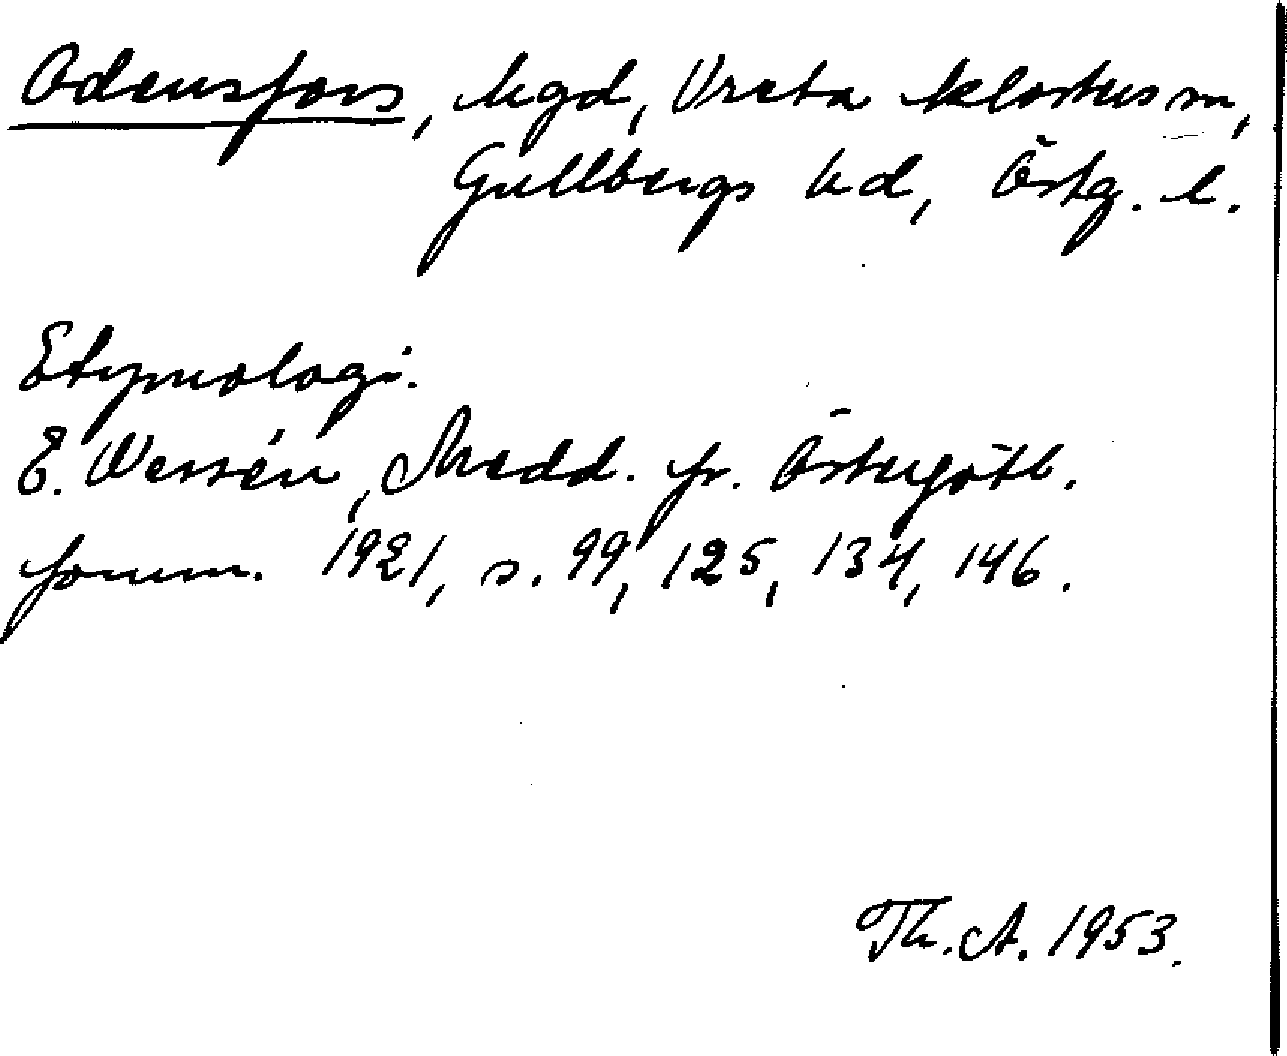 Odensfors, hgd, Vreta klosters sn,
Gullbergs hd, Östg. l.
Etymologi.
E. Wessén, Medd. fr. Östergötl.
fornm. 1921, s. 99, 125, 134, 146.
Th. A. 1953.